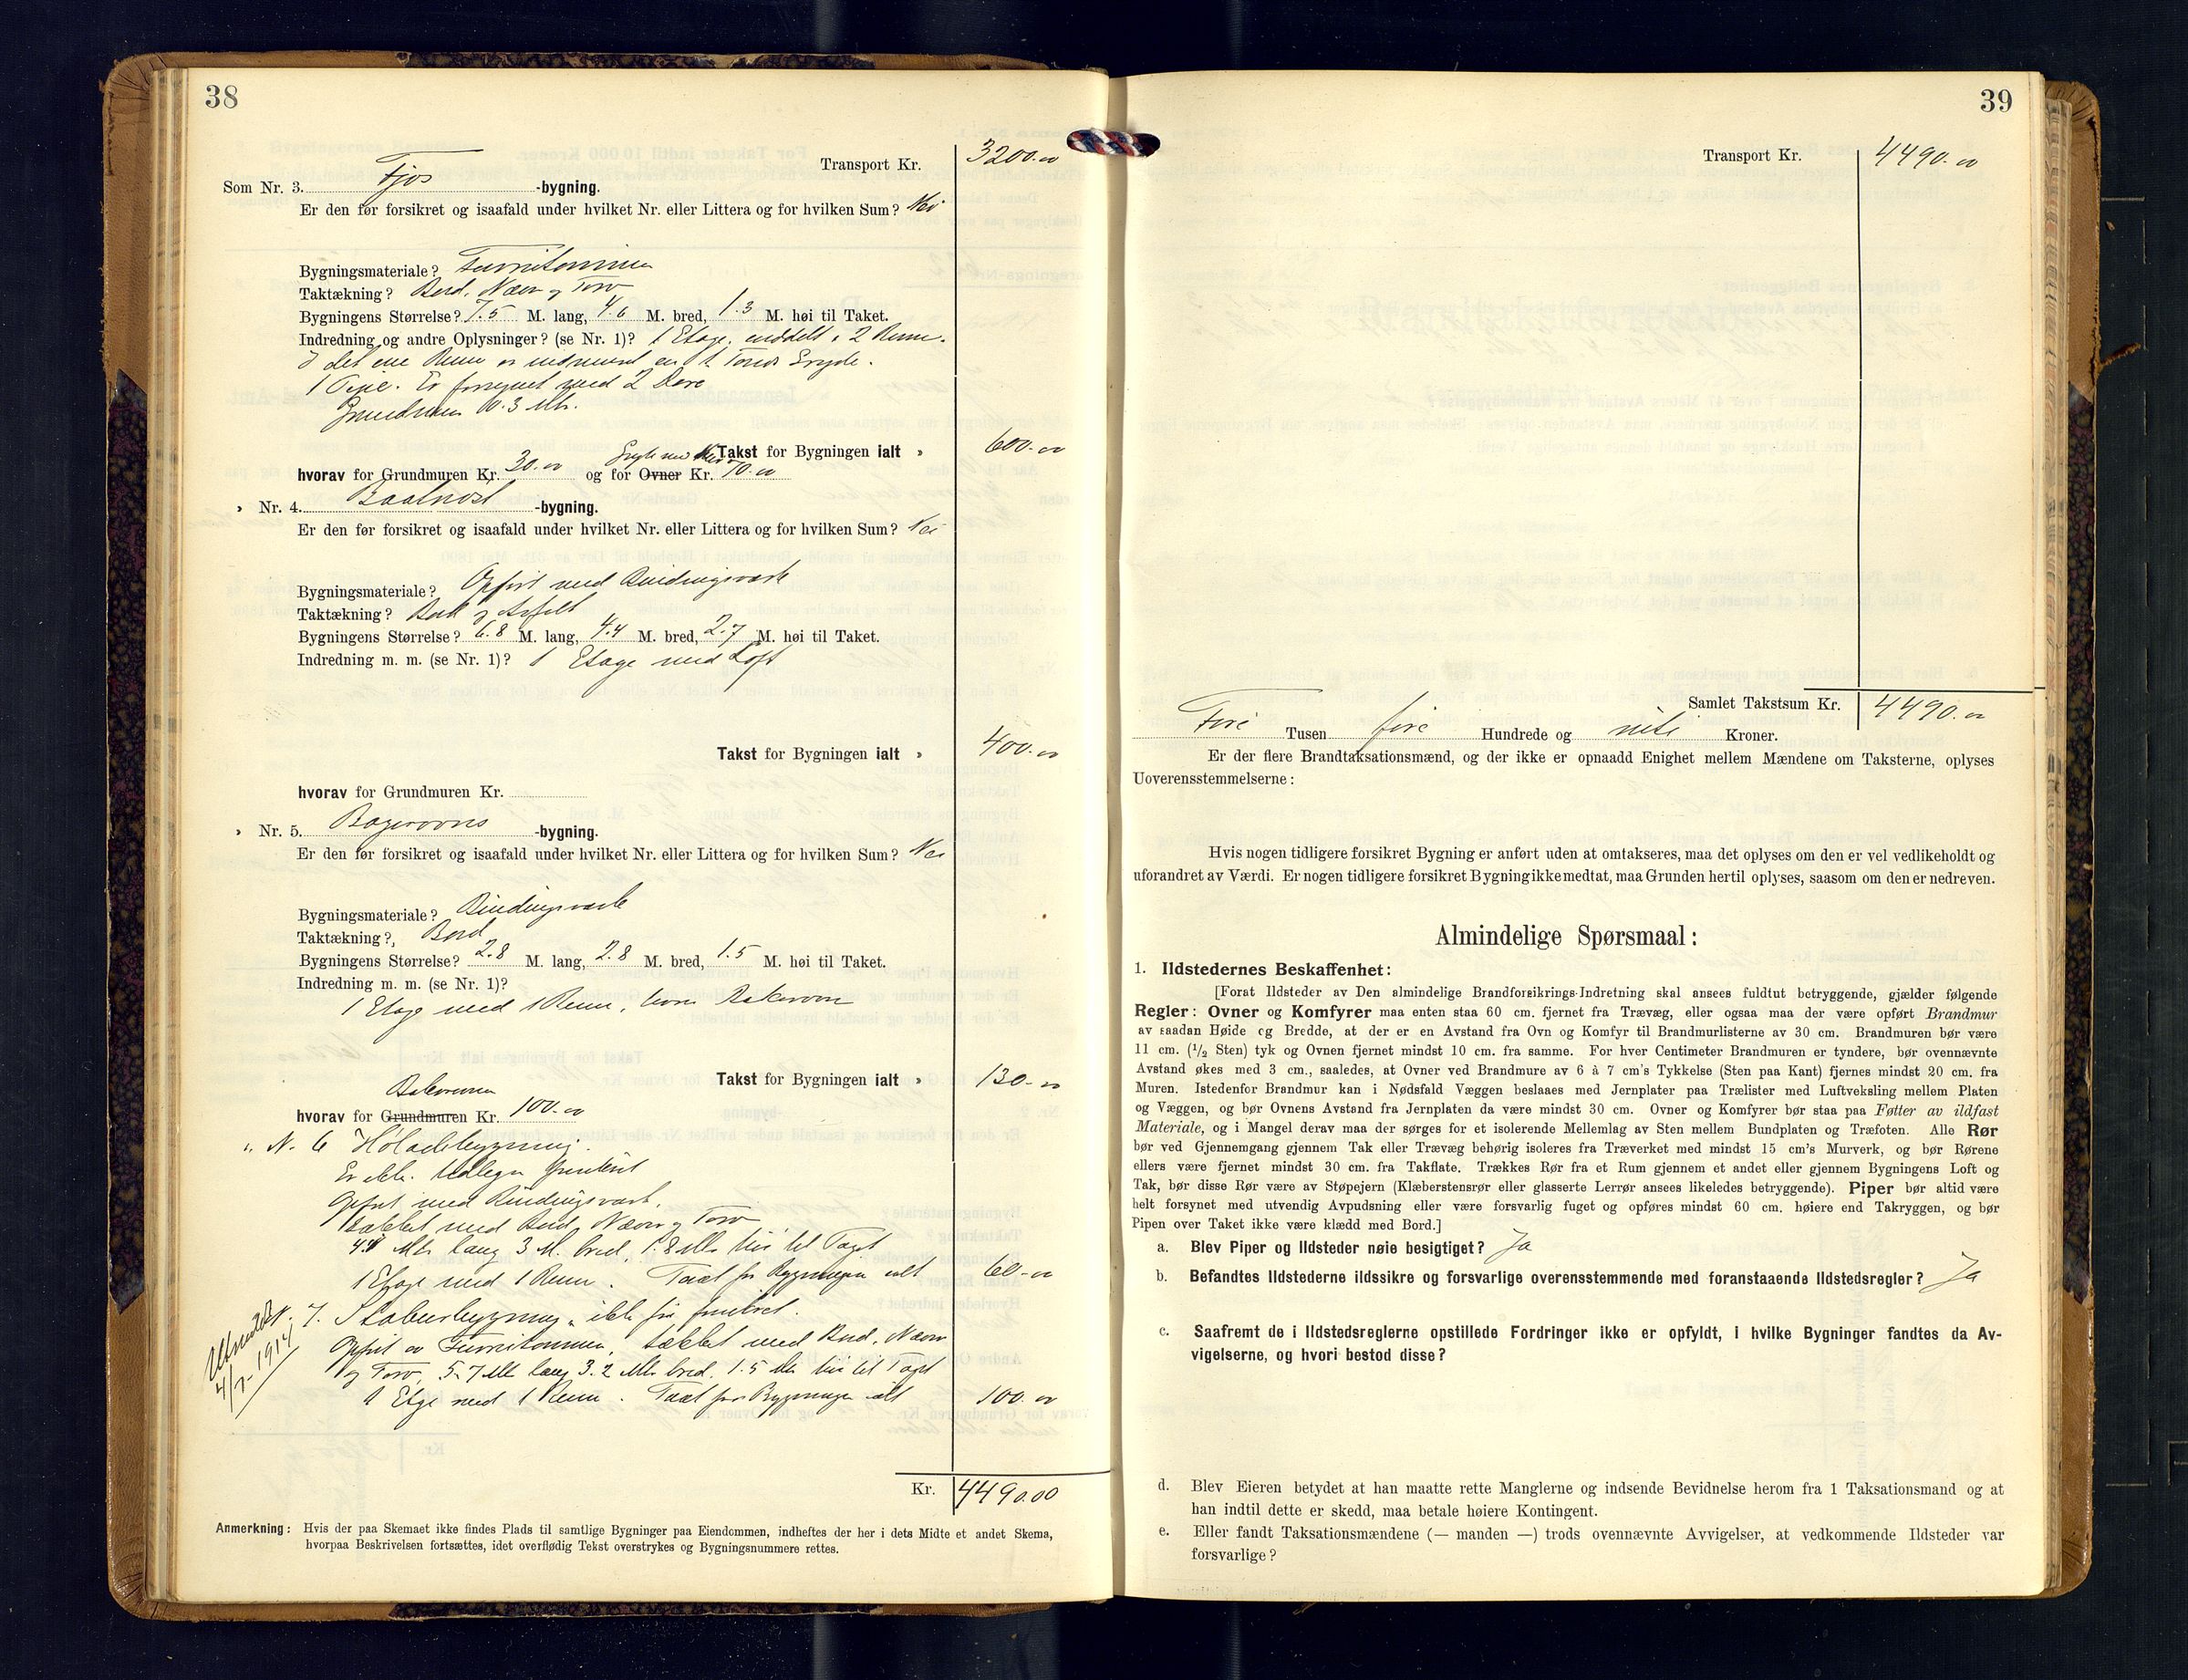 38
Transport Kr. 3200.00
Som Nr. 3. Fjøs -bygning.
Er den før forsikret og isaafald under hvilket Nr. eller Littera og for hvilken Sum? Nei
Bygningsmateriale? Furutømmer
Taktækning? Bord, Næver og Torv
Bygningens Størrelse? 7.5 M. lang, 4.6 M. bred, 1.3 M. høi til Taket.
Indredning og andre Oplysninger? (se Nr. 1)? 1 Etage, inddelt i 2 Rum.
I det ene Rum er indmuret en Gryde.
1 Pipe. Er forsynet med 2 Døre
Grundmur 0.3 Mtr.
Takst for Bygningen ialt » 600.00
hvorav for Grundmuren Kr. 30.00 og for Ovner Kr. 70.00
» Nr. 4. Baatnøst -bygning.
Er den før forsikret og isaafald under hvilket Nr. eller Littera og for hvilken Sum? Nei
Bygningsmateriale? Opført med Bindingsverk
Taktækning? Bord og Asfalt
Bygningens Størrelse? 6.8 M. lang, 4.4 M. bred, 2.7 M. høi til Taket.
Indredning m. m. (se Nr. 1)? 1 Etage med Loft
Takst for Bygningen ialt » 400.00
hvorav for Grundmuren Kr.
» Nr. 5. Bagerovns -bygning.
Er den før forsikret og isaafald under hvilket Nr. eller Littera og for hvilken Sum? Nei
Bygningsmateriale? Bindingsverk
Taktækning?, Bord
Bygningens Størrelse? 2.8 M. lang, 2.8 M. bred, 1.5 M. høi til Taket.
Indredning m. m. (se Nr. 1)?
1 Etage med 1 Rum, hvori Bakerovn
Takst for Bygningen ialt » 130.00
Bakerovnen
hvorav for Grundmuren Kr. 100.00
" N. 6 Høladebygning.
Er ikke tidligere forsikret
Opført med Bindingsverk.
tækket med Bord, Næver og Torv
4.4 Mtr lang 3 M. bred, 1.8 Mtr høi til Taget
1 Etage med 1 Rum. Taxt for Bygningen ialt 60.00
N. 7. Stabursbygning, ikke før forsikret.
Opført av Furutømmer, tækket med Bord, Næver
og Torv, 5.7 Mtr lang 3.2 Mtr bred, 1.5 Mtr høi til Taget
1 Etge med 1 Rum. Taxt for Bygningen ialt 100.00
Utmeldt
4/7-1914
Kr. 4490.00
Anmerkning: Hvis der paa Skemaet ikke findes Plads til samtlige Bygninger paa Eiendommen, indheftes der her i dets Midte et andet Skema,
hvorpaa Beskrivelsen fortsættes, idet overflødig Tekst overstrykes og Bygningsnummere rettes.
39
Transport Kr. 4490.00
Samlet Takstsum Kr. 4490.00
Fire Tusen fire Hundrede og niti Kroner.
Er der flere Brandtaksationsmænd, og der ikke er opnaadd Enighet mellem Mændene om Taksterne, oplyses
Uoverensstemmelserne:
Hvis nogen tidligere forsikret Bygning er anført uden at omtakseres, maa det oplyses om den er vel vedlikeholdt og
uforandret av Værdi. Er nogen tidligere forsikret Bygning ikke medtat, maa Grunden hertil oplyses, saasom om den er nedreven.
Almindelige Spørsmaal:
1. Ildstedernes Beskaffenhet:
[Forat Ildsteder av Den almindelige Brandforsikrings-Indretning skal ansees fuldtut betryggende, gjælder følgende
Regler: Ovner og Komfyrer maa enten staa 60 cm. fjernet fra Trævæg, eller ogsaa maa der være opført Brandmur
av saadan Høide og Bredde, at der er en Avstand fra Ovn og Komfyr til Brandmurlisterne av 30 cm. Brandmuren bør være
11 cm. (1/2 Sten) tyk og Ovnen fjernet mindst 10 cm. fra samme. For hver Centimeter Brandmuren er tyndere, bør ovennævnte
Avstand økes med 3 cm., saaledes, at Ovner ved Brandmure av 6 à 7 cm's Tykkelse (Sten paa Kant) fjernes mindst 20 cm. fra
Muren. Istedenfor Brandmur kan i Nødsfald Væggen beslaaes med Jernplater paa Trælister med Luftveksling mellem Platen
og Væggen, og bør Ovnens Avstand fra Jernplaten da være mindst 30 cm. Ovner og Komfyrer bør staa paa Føtter av ildfast
Materiale, og i Mangel derav maa der sørges for et isolerende Mellemlag av Sten mellem Bundplaten og Træfoten. Alle Rør
bør ved Gjennemgang gjennem Tak eller Trævæg behørig isoleres fra Træverket med mindst 15 cm's Murverk, og bør Rørene
ellers være fjernet mindst 30 cm. fra Takflate. Trækkes Rør fra et Rum gjennem et andet eller gjennem Bygningens Loft og
Tak, bør disse Rør være av Støpejern (Klæberstensrør eller glasserte Lerrør ansees likeledes betryggende). Piper bør altid være
helt forsynet med utvendig Avpudsning eller være forsvarlig fuget og opføres mindst 60 cm. høiere end Takryggen, og bør
Pipen over Taket ikke være klædd med Bord.]
a. Blev Piper og Ildsteder nøie besigtiget? Ja
b. Befandtes Ildstederne ildssikre og forsvarlige overensstemmende med foranstaaende Ildstedsregler? Ja
c. Saafremt de i Ildstedsreglerne opstillede Fordringer ikke er opfyldt, i hvilke Bygninger fandtes da Av-
vigelserne, og hvori bestod disse?
d. Blev Eieren betydet at han maatte rette Manglerne og indsende Bevidnelse herom fra 1 Taksationsmand og at
han indtil dette er skedd, maa betale høiere Kontingent.
e. Eller fandt Taksationsmændene (— manden —) trods ovennævnte Avvigelser, at vedkommende Ildsteder var
forsvarlige?